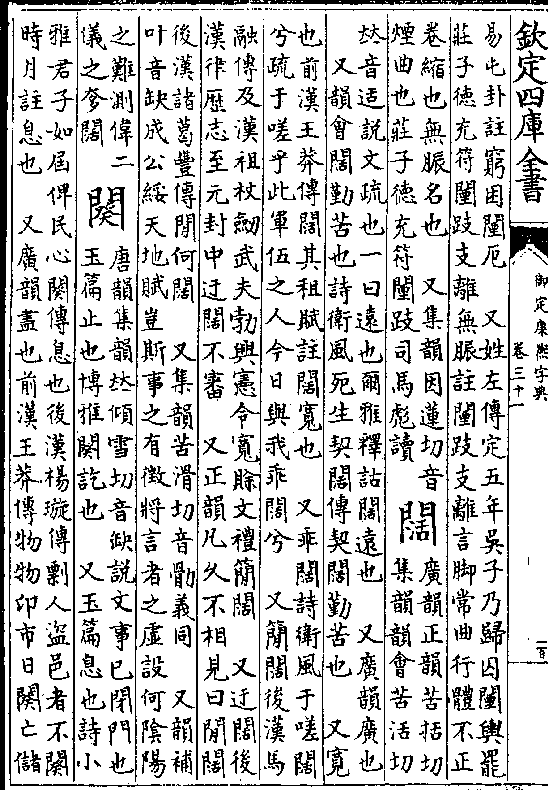 欽定四庫全書
御定康熙字典
卷三十一
易屯卦註窮困闉厄　又姓左傳定五年吳子乃歸囚闉輿罷
莊子德充符闉跂支離無脤註闉跂支離言脚常曲行體不正
卷縮也無脤名也　又集韻因蓮切音
煙曲也莊子德充符闉跂司馬彪讀　闊　廣韻正韻苦括切
集韻韻會苦活切
𠀤音适說文疏也一曰遠也爾雅釋詁闊遠也　又廣韻廣也
又韻會闊勤苦也詩衛風死生契闊傳契闊勤苦也　又寬
也前漢王莽傳闊其租賦註闊寬也　又乖闊詩衛風于嗟闊
兮疏于嗟乎此軍伍之人今日與我乖闊兮　又簡闊後漢馬
融傳及漢祖杖劒武夫勃興憲令寬賒文禮簡闊　又迂闊後
漢律歷志至元封中迂闊不審　又正韻凡久不相見曰閒闊
後漢諸葛豐傳閒何闊　又集韻苦滑切音䯇義同　又韻補
叶音缺成公綏天地賦豈斯事之有徵將言者之虛設何陰陽
之難測偉二
儀之奓闊　闋　唐韻集韻𠀤傾雪切音缺說文事已閉門也
玉篇止也博雅闋訖也　又玉篇息也詩小
雅君子如屆俾民心闋傳息也後漢楊璇傳剽人盜邑者不闋
時月註息也　又廣韻盡也前漢王莽傳物物卬市日闋亡儲